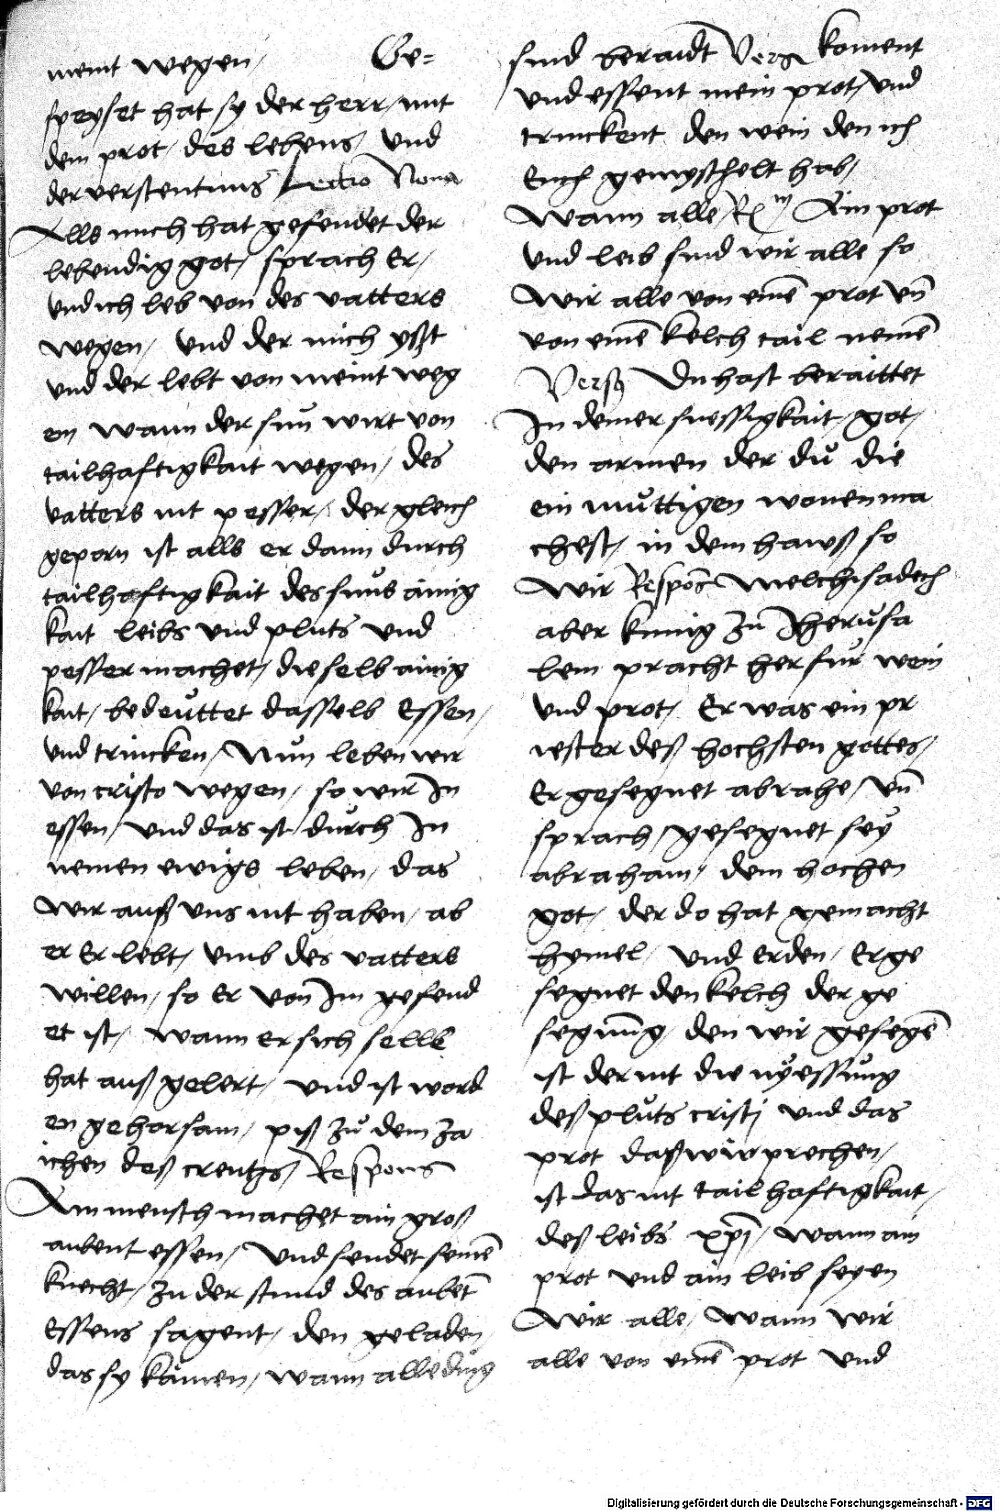 meint wegen / Ge=
speyset hat sy der herr / mit
dem prot / des lebens / Und
der verstentnus Lectio Nona
Alls mich hat gesendet der
lebendig got / sprach Er /
und ich leb von des vatters
wegen / Und der mich ysßt
und der lebt von meint weg
en wann der sun wirt von
tailhaftigkait wegen / des
vatters nit pesser / der gleich
geporn ist alls er dann durch
tailhaftigkait des suns ainig
kait leibs und pluts und
pesser machet / die selb ainig
kait / bedeuttet dasselb Essen /
und trincken / Nun leben wir
von cristo wegen / so wir In
essen / und das ist durch In
nemen ewigs leben / das
wir auß uns nit haben / ab
er Er lebt / umb des vatters
willen / so Er von Im gesend
et ist / wann er sich sellb
hat auß gelert / und ist word
en gehorsam / piß zu dem za
ichen deß creutzs / Respons
Ain mensch machet ain groß
aubent essen / Und sendet seinē
knecht / zu der stund des aubet
Essens sagent / den geladen /
das sy kämen / wann alle ding
sind beraidt Vers koment
und essent mein prot / und
trinckent den wein den ich
Euch gemyschelt hab /
Wann alle / Rm Ain prot
und leib sind wir alle so
Wir alle von einē prot un̄
von einē kelch tail nemē
Verß Du hast beraittet
In deiner suessigkait / got /
den armen der du die
ein muttigen wonen ma
chest / in dem hawß so
wir Respons Melchisadech
aber kunig zu Jherusa
lem pracht herfur wein
und prot / Er was ein pr
iester deß hochsten gottes /
Er gesegnet abrahe / un̄
sprach / gesegnet sey
abraham / dem hochen
got / der do hat gemacht
hymel / und Erden / Er ge
segnet den kelch der ge
segnung / den wir gesegē
ist der nit die nyessung
deß pluts cristi und das
prot daß wir prechen /
ist das nit tail haftigkait /
deß leibs xp̄i / wann ain
prot und ain leib seyen
Wir alle / wann wir
alle von einē prot und
Digitalisierung gefördert durch die Deutsche Forschungsgemeinschaft - DFG